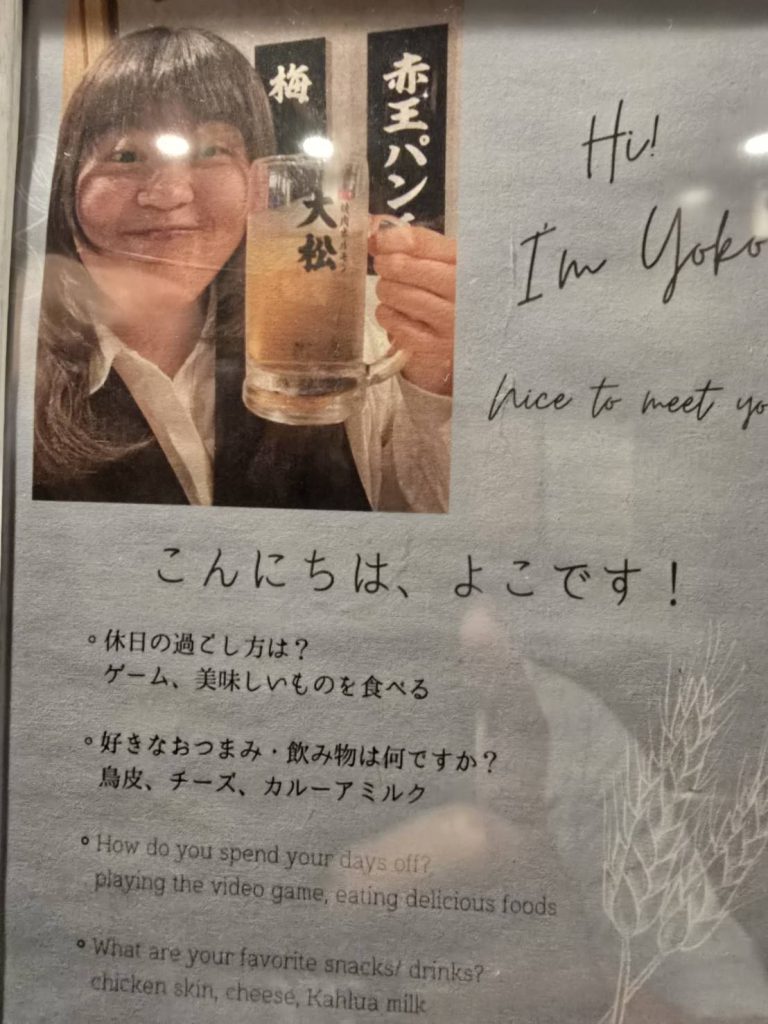 梅
赤王パン
焼肉ホルモン
大松
Hi!
I'm Yoko
nice to meet yo
こんにちは、よこです！
。休日の過ごし方は？
ゲーム、美味しいものを食べる
。好きなおつまみ・飲み物は何ですか？
鳥皮、チーズ、カルーアミルク
。How do you spend your days off?
playing the video game, eating delicious foods
。What are your favorite snacks/ drinks?
chicken skin, cheese, Kahlua milk